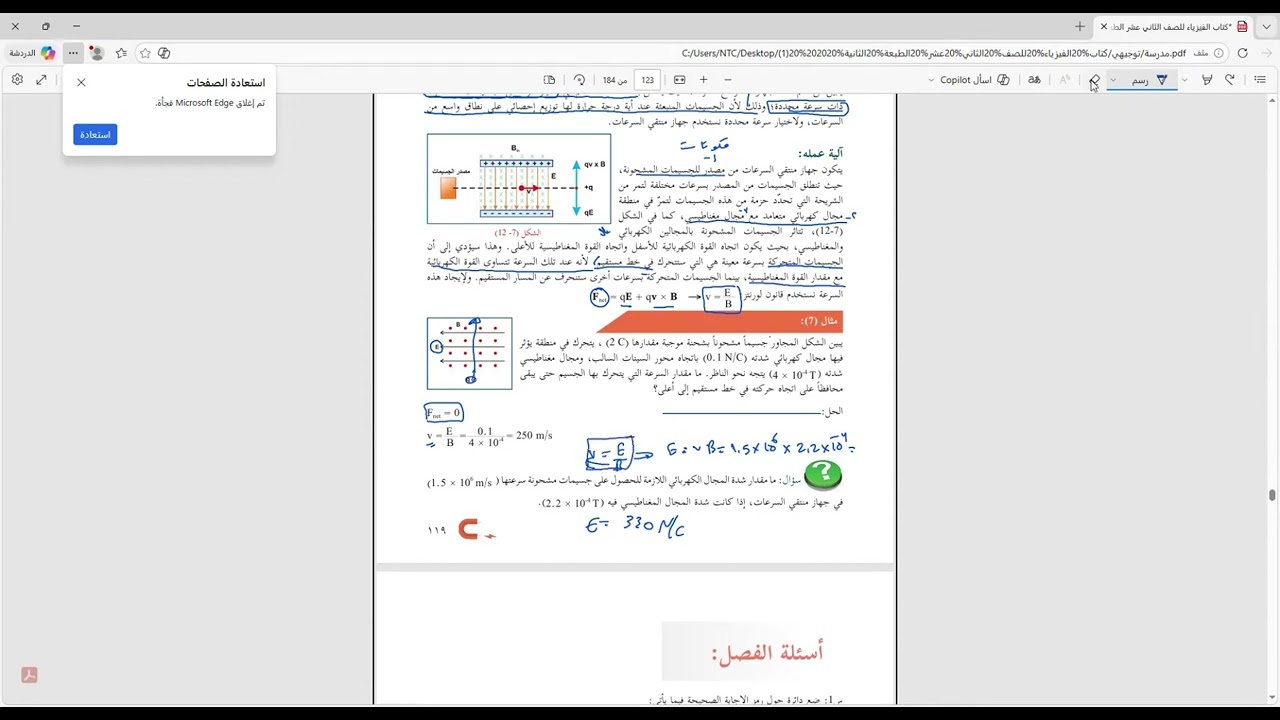 *كتاب الفيزياء للصف الثاني عشر الط
الدردشة
C:/Users/NTC/Desktop/مدرسة/توجيهي/كتاب%20الفيزياء%20للصف%20الثاني%20عشر%20الطبعة%20الثانية%202020%20(1).pdf
ملف
123 من 184
اسأل Copilot
رسم
استعادة الصفحات
تم إغلاق Microsoft Edge فجأة.
استعادة
ذات سرعة محددة؛ وذلك لأن الجسيمات المنبعثة عند أية درجة حرارة لها توزيع إحصائي على نطاق واسع من
السرعات، ولاختيار سرعة محددة نستخدم جهاز منتقي السرعات.
مكونات
آلية عمله:
-١
يتكون جهاز منتقي السرعات من مصدر للجسيمات المشحونة،
حيث تنطلق الجسيمات من المصدر بسرعات مختلفة لتمر من
الشريحة التي تحدّد حزمة من هذه الجسيمات لتمرّ في منطقة
٢- مجال كهربائي متعامد مع مجال مغناطيسي، كما في الشكل
(7-12)، تتأثر الجسيمات المشحونة بالمجالين الكهربائي
والمغناطيسي، بحيث يكون اتجاه القوة الكهربائية للأسفل واتجاه القوة المغناطيسية للأعلى. وهذا سيؤدي إلى أن
الجسيمات المتحركة بسرعة معينة هي التي ستتحرك في خط مستقيم، لأنه عند تلك السرعة تتساوى القوة الكهربائية
مع مقدار القوة المغناطيسية، بينما الجسيمات المتحركة بسرعات أخرى ستنحرف عن المسار المستقيم. ولإيجاد هذه
السرعة نستخدم قانون لورنتز Fnet = qE + qv × B → v = E/B
مصدر الجسيمات
Bin
E
v
qv x B
+q
qE
الشكل (7- 12)
مثال (7):
يبين الشكل المجاور جسيماً مشحوناً بشحنة موجبة مقدارها (2 C) ، يتحرك في منطقة يؤثر
فيها مجال كهربائي شدته (0.1 N/C) باتجاه محور السينات السالب، ومجال مغناطيسي
شدته (4 × 10-4 T) يتجه نحو الناظر. ما مقدار السرعة التي يتحرك بها الجسيم حتى يبقى
محافظاً على اتجاه حركته في خط مستقيم إلى أعلى؟
B
E
الحل:
Fnet = 0
v = E/B = 0.1/4 × 10-4 = 250 m/s
v = E/B → E = vB = 1.5×10^6 × 2.2×10^-4 =
سؤال: ما مقدار شدة المجال الكهربائي اللازمة للحصول على جسيمات مشحونة سرعتها (1.5 × 10^6 m/s)
في جهاز منتقي السرعات، إذا كانت شدة المجال المغناطيسي فيه (2.2 × 10-4 T).
E = 330 N/C
١١٩
أسئلة الفصل:
س1: ضع دائرة حول رمز الإجابة الصحيحة فيما يأتي: